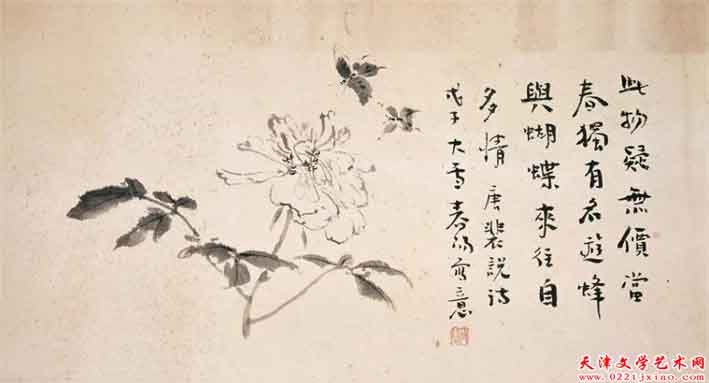 此物疑無價當
春獨有名遊蜂
與蝴蝶來往自
多情 唐裴說詩
戊子大雪春寫意
天津文学艺术网
www.022ijxiao.com